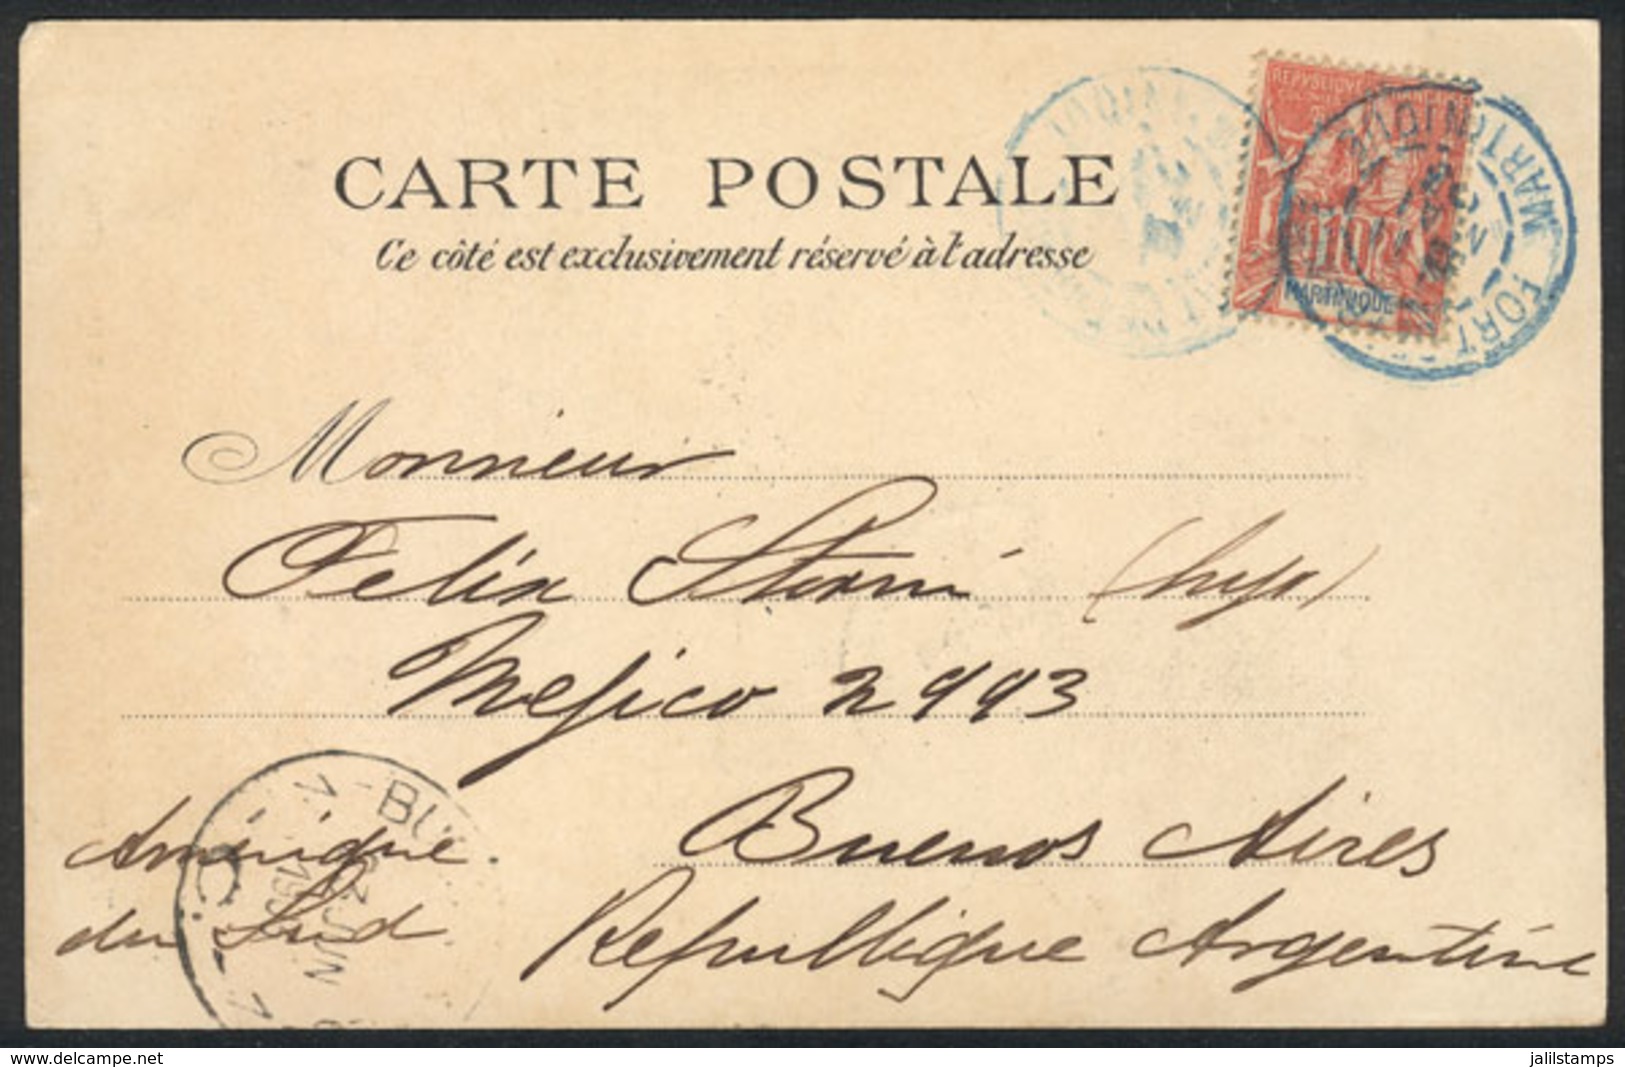 REPVSLIQVE FRANCAISE
10
MARTINIQUE
MARTINIQUE
FORT
CARTE POSTALE
Ce côté est exclusivement réservé à l'adresse
Monsieur
Felix Storni (hijo)
Mejico 2993
Buenos Aires
Amérique
du Sud
Republique Argentine
BU
JUN
www.delcampe.net
jalilstamps